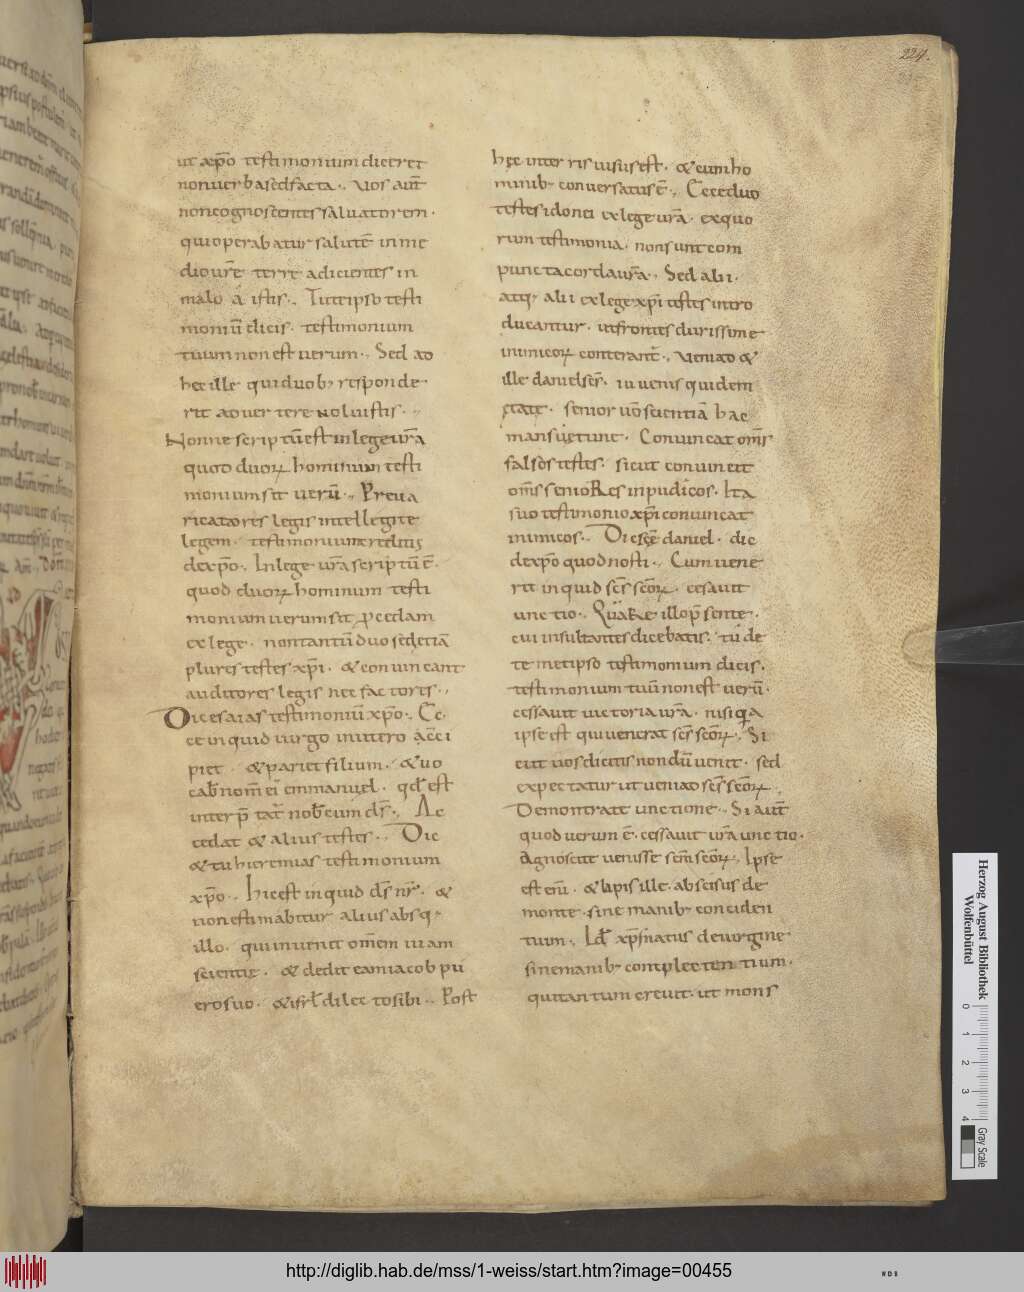 224.
ut xp̄o testimonium diceret
non verba sed facta. vos aut̄
non cognoscentes salvatorem.
qui operabatur salutē in me
dio vr̄e terrę adicientes in
malo
moniū dicis. testimonium
tuum non est verum. Sed ad
hęc ille qui duob; responde
rit advertere noluistis.
Nonne scriptū est in lege vr̄a
quod duoꝝ hominum testi
monium sit verū. Preva
ricatores legis intellegite
legem. testimonium creditis
de xp̄o. In lege vr̄a scriptū ē.
quod duoꝝ hominum testi
monium verum sit. Procedam
ex lege. non tantū duo sed etiā
plures testes xp̄i. & convincant
auditores legis nec factores.
Dic esaias testimoniū xp̄o. Ec
ce inquid virgo in utero acci
piet. & pariet filium. & vo
cab̄ nom̄ ei emmanuel. qd̄ est
interp̄tat̄ nob̄cum d̄s. Ac
cedat & alius testes. Dic
& tu hieremias testimonium
xp̄o. Hic est inquid d̄s nr̄. &
non estimabitur alius absq;
illo. qui invenit om̄em viam
scientię. & dedit eam iacob pu
ero suo. & isrl̄ dilecto sibi. Post
hęc in terris visus est. & cum ho
minib; conversatus ē. Ecce duo
testes idonei ex lege vr̄a. ex quo
rum testimonia. non sunt com
puncta corda vr̄a. Sed alii.
atq; alii ex lege xp̄i testes intro
ducantur. ut frontes durissime
inimicoꝝ conterant̄. Veniad &
ille daniel sc̄s. iuvenis quidem
ętate. senior vō scientiā hac
mansuetune. Convincat om̄s
falsos testes. sicut convincit
om̄s seniores inpudicos. Ita
suo testimonio xp̄i convincat
inimicos. Dic sc̄e daniel. dic
de xp̄o quod nosti. Cum vene
rit inquid sc̄s sc̄oꝝ. cesavit
unctio. Quare illo p̄sente.
cui insultantes dicebatis. tu de
te metipso testimonium dicis.
testimonium tuū non est verū.
cessavit victoria vr̄a. nisi quia
ipse est qui venerat sc̄s sc̄oꝝ. Si
cut vos dicitis nondū venit. sed
expectatur ut veniad sc̄s sc̄oꝝ
Demontrate unctione. Si aut̄
quod verum ē. cessavit vr̄a unctio.
agnoscite venisse sc̄m sc̄oꝝ. Ipse
est eni. & lapis ille. abscisus de
monte. sine manib; conciden
tium. Id ē xp̄s natus de virgine
sine manib; complectentium.
qui tantum crevit. ut mons
Herzog August Bibliothek
Wolfenbüttel
0 1 2 3 4
Gray Scale
http://diglib.hab.de/mss/1-weiss/start.htm?image=00455